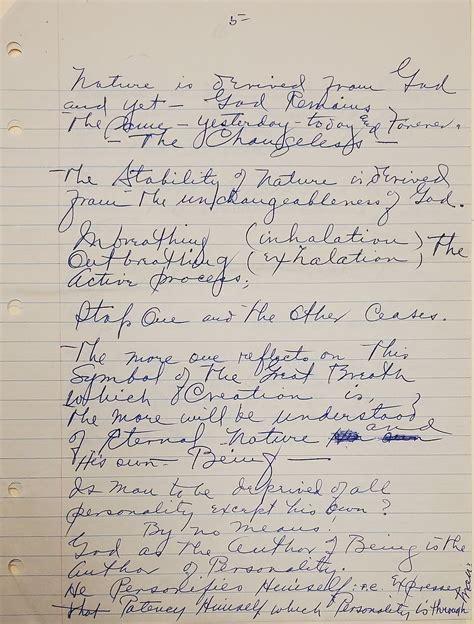 5-
Nature is derived from God
and yet - God Remains
The Same - yesterday - today and Forever.
- The Changeless -
- The Stability of Nature is derived
from the unchangeableness of God.
Inbreathing (inhalation)
Outbreathing (exhalation) The
Active process.
Stop One and the Other Ceases.
- The more one reflects on This
Symbol of The Great Breath
which Creation is,
The more will be understood
of Eternal Nature and
His own - Being -
Is man to be deprived of all
personality except his own?
By no means!
God as the Author of Being is the
author of Personality.
He Personifies Himself: i.e. Expresses
that Himself which Personality is through
man.